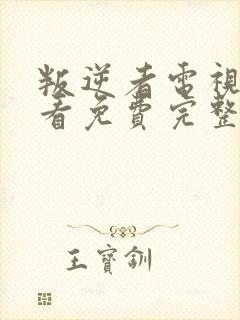 叛逆者電視
看免費完整
王寶釧